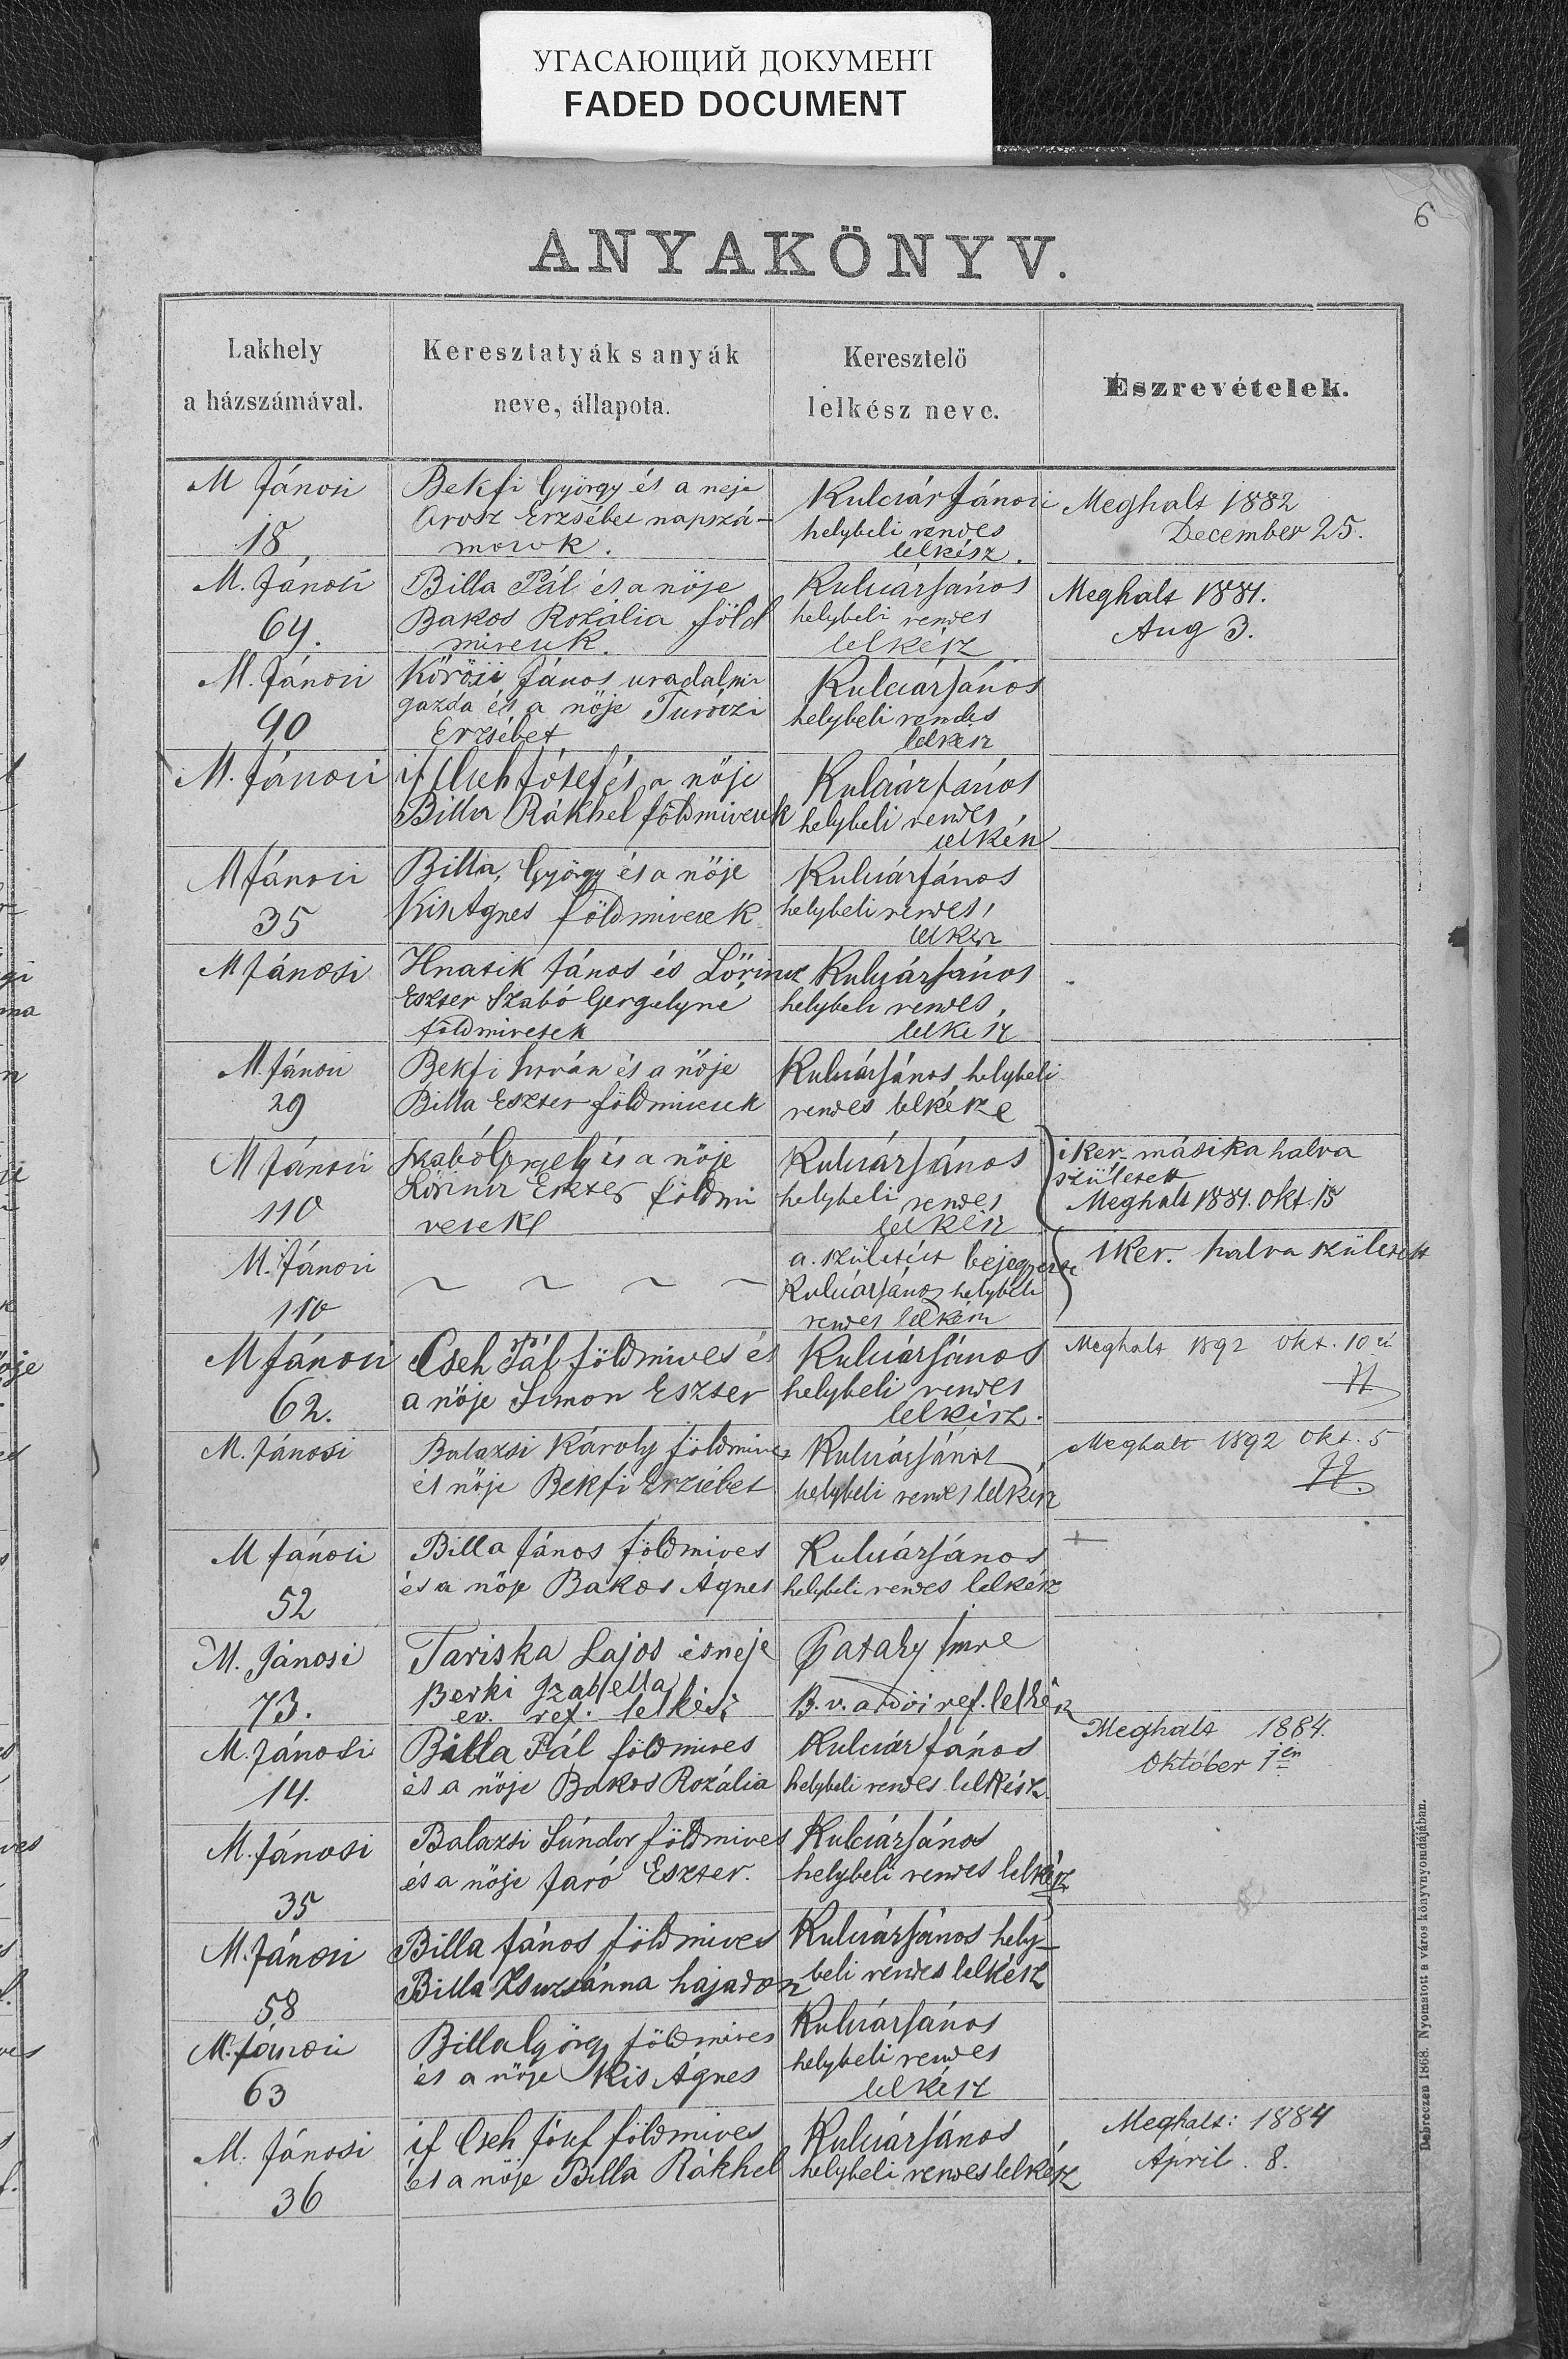 УГАСАЮЩИЙ ДОКУМЕНТ
FADED DOCUMENT
6
ANYAKÖNYV.
Lakhely
a házszámával.
Keresztatyák s anyák
neve, állapota.
Keresztelö
lelkész neve.
Észrevételek.
M Jánosi
18.
Bekfi György és a neje
Orosz Erzsébet napszá-
mosok.
Kulcsár János
helybeli rendes
lelkész.
Meghalt 1882
December 25.
M. Jánosi
64.
Billa Pál és a nöje
Bakos Rozália föld
mivesek.
Kulcsár János
helybeli rendes
lelkész
Meghalt 1881.
Aug 3.
M. Jánosi
90
Körösi János uradalmi
gazda és a nöje Turóczi
Erzsébet
Kulcsár János
helybeli rendes
lelkész
M. Jánosi
if Cseh Jósef és a nöje
Billa Rákhel földmivesek
Kulcsár János
helybeli rendes
lelkész
M Jánosi
35
Billa György és a nöje
Kis Ágnes földmivesek
Kulcsár János
helybeli rendes
lelkész
M Jánosi
Hnatik János és Lörincz
Eszter Szabó Gergelyné
földmivesek
Kulcsár János
helybeli rendes
lelkész
M. Jánosi
29
Bekfi István és a nöje
Billa Eszter földmivesek
Kulcsár János helybeli
rendes lelkész
M Jánosi
110
Szabó Gergely és a nöje
Lörincz Eszter földmi
vesek
Kulcsár János
helybeli rendes
lelkész
iker másika halva
született
Meghalt 1881. Okt. 15
M. Jánosi
110
~ ~ ~ ~
a születést bejegyezte
Kulcsár János helybeli
rendes lelkész
iker. halva született
M Jánosi
62.
Cseh Pál földmives és
a nöje Simon Eszter
Kulcsár János
helybeli rendes
lelkész.
Meghalt 1892 Okt. 10
M. Jánosi
Balazsi Károly földmives
és nöje Bekfi Erzsébet
Kulcsár János
helybeli rendes lelkész
Meghalt 1892 Okt. 5
M Jánosi
52
Billa János földmives
és a nöje Bakos Ágnes
Kulcsár János
helybeli rendes lelkész
+
M. Jánosi
73.
Tariska Lajos és neje
Berki Izabella
ev. ref. lelkész
Imre
B. v. ref. lelkész
M. Jánosi
14.
Billa Pál földmives
és a nöje Bakos Rozália
Kulcsár János
helybeli rendes lelkész
Meghalt 1884.
Október 1én
M. Jánosi
35
Balazsi Sándor földmives
és a nöje Jaró Eszter.
Kulcsár János
helybeli rendes lelkész
M. Jánosi
58
Billa János földmives
Billa Zsuzsánna hajadon
Kulcsár János hely-
beli rendes lelkész
M. Jánosi
63
Billa György földmives
és a nöje Kis Ágnes
Kulcsár János
helybeli rendes
lelkész
M. Jánosi
36
if Cseh Jósef földmives
és a nöje Billa Rákhel
Kulcsár János
helybeli rendes lelkész
Meghalt: 1884
April. 8.
Debreczen 1868. Nyomatott a város könyvnyomdájában.